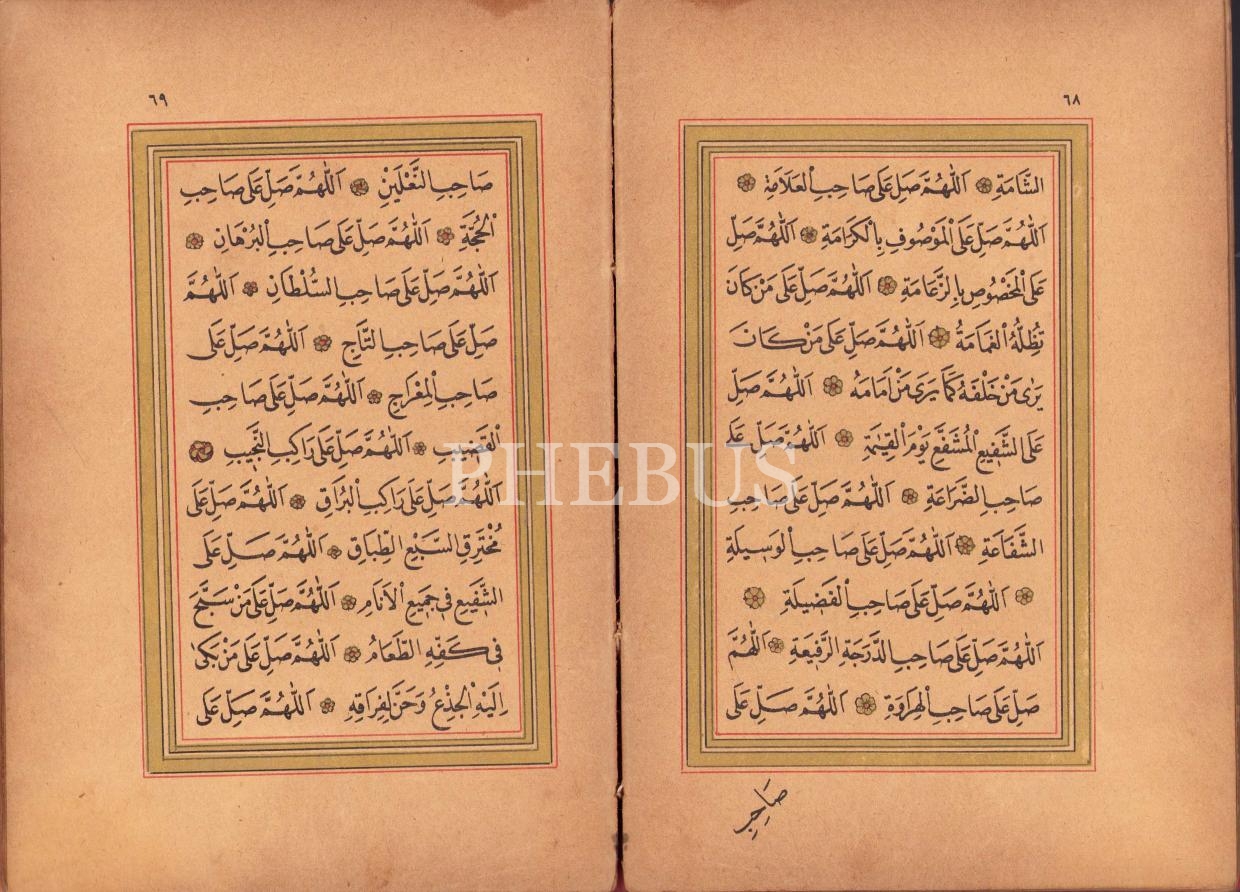 ٦٨
الشَّامَةِ ۞ اَللّٰهُمَّ صَلِّ عَلٰى صَاحِبِ الْعَلَامَةِ ۞
اَللّٰهُمَّ صَلِّ عَلَى الْمَوْصُوفِ بِالْكَرَامَةِ ۞ اَللّٰهُمَّ صَلِّ
عَلَى الْمَخْصُوصِ بِالزَّعَامَةِ ۞ اَللّٰهُمَّ صَلِّ عَلٰى مَنْ كَانَ
تُظِلُّهُ الْغَمَامَةُ ۞ اَللّٰهُمَّ صَلِّ عَلٰى مَنْ كَانَ
يَرٰى مَنْ خَلْفَهُ كَمَا يَرٰى مَنْ اَمَامَهُ ۞ اَللّٰهُمَّ صَلِّ
عَلَى الشَّفِيعِ الْمُشَفَّعِ يَوْمَ الْقِيٰمَةِ ۞ اَللّٰهُمَّ صَلِّ عَلٰى
صَاحِبِ الضَّرَاعَةِ ۞ اَللّٰهُمَّ صَلِّ عَلٰى صَاحِبِ
الشَّفَاعَةِ ۞ اَللّٰهُمَّ صَلِّ عَلٰى صَاحِبِ الْوَسِيلَةِ
۞ اَللّٰهُمَّ صَلِّ عَلٰى صَاحِبِ الْفَضِيلَةِ ۞
اَللّٰهُمَّ صَلِّ عَلٰى صَاحِبِ الدَّرَجَةِ الرَّفِيعَةِ ۞ اَللّٰهُمَّ
صَلِّ عَلٰى صَاحِبِ الْهِرَاوَةِ ۞ اَللّٰهُمَّ صَلِّ عَلٰى
صَاحِبِ
٦٩
صَاحِبِ النَّعْلَيْنِ ۞ اَللّٰهُمَّ صَلِّ عَلٰى صَاحِبِ
الْحُجَّةِ ۞ اَللّٰهُمَّ صَلِّ عَلٰى صَاحِبِ الْبُرْهَانِ ۞
اَللّٰهُمَّ صَلِّ عَلٰى صَاحِبِ السُّلْطَانِ ۞ اَللّٰهُمَّ
صَلِّ عَلٰى صَاحِبِ التَّاجِ ۞ اَللّٰهُمَّ صَلِّ عَلٰى
صَاحِبِ الْمِعْرَاجِ ۞ اَللّٰهُمَّ صَلِّ عَلٰى صَاحِبِ
الْقَضِيبِ ۞ اَللّٰهُمَّ صَلِّ عَلٰى رَاكِبِ النَّجِيبِ ۞
اَللّٰهُمَّ صَلِّ عَلٰى رَاكِبِ الْبُرَاقِ ۞ اَللّٰهُمَّ صَلِّ عَلٰى
مُخْتَرِقِ السَّبْعِ الطِّبَاقِ ۞ اَللّٰهُمَّ صَلِّ عَلَى
الشَّفِيعِ فِى جَمِيعِ الْاَنَامِ ۞ اَللّٰهُمَّ صَلِّ عَلٰى مَنْ سَبَّحَ
فِى كَفِّهِ الطَّعَامُ ۞ اَللّٰهُمَّ صَلِّ عَلٰى مَنْ بَكٰى
اِلَيْهِ الْجِذْعُ وَحَنَّ لِفِرَاقِهِ ۞ اَللّٰهُمَّ صَلِّ عَلٰى
PHEBUS